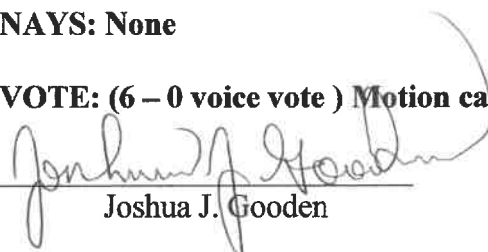 NAYS: None
VOTE: (6 – 0 voice vote ) Motion ca
Joshua J. Gooden
Joshua J. Gooden